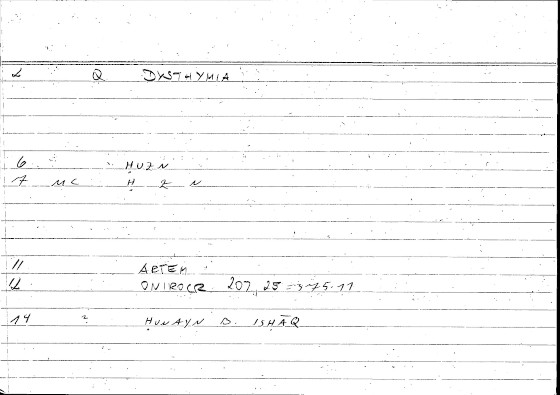 2 Q DYSTHYMIA
6 ḤUZN
7 MC Ḥ Z N
11 ARTEM
12 ONIROCR 207, 25 = 375.11
14 2 ḤUNAYN B. ISḤĀQ